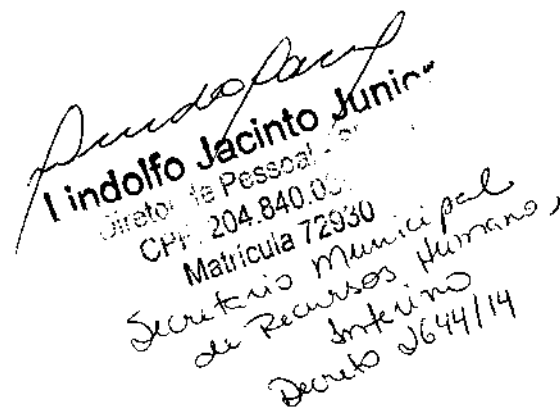 Lindolfo Jacinto Junior
Diretor de Pessoal
CPF: 204.840.0
Matrícula 72930
Secretário Municipal
de Recursos Humanos,
Interino
Decreto 2644/14